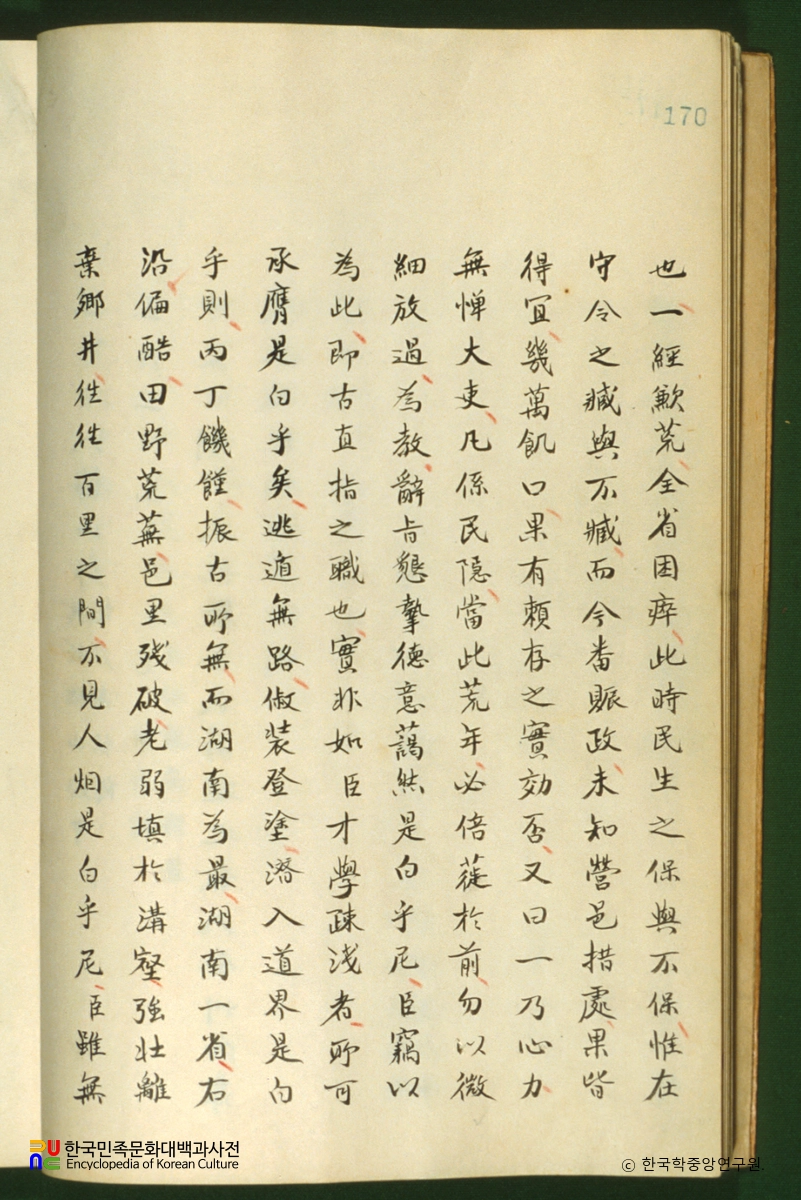 170
也一經歉荒全省困瘁此時民生之保與不保惟在
守令之臧與不臧而今番賑政未知營邑措處果皆
得宜幾萬飢口果有賴存之實効否又曰一乃心力
無憚大吏凡係民隱當此荒年必倍蓰於前勿以微
細放過爲教辭旨懇摯德意藹然是白乎尼臣竊以
為此即古直指之職也實非如臣才學疎淺者所可
承膺是白乎矣逃遁無路俶裝登塗潛入道界是白
乎則丙丁饑饉振古所無而湖南為最湖南一省右
沿偏酷田野荒蕪邑里残破老弱填於溝壑強壯離
棄鄉井徃徃百里之間不見人烟是白乎尼臣雖無
한국민족문화대백과사전
Encyclopedia of Korean Culture
© 한국학중앙연구원.